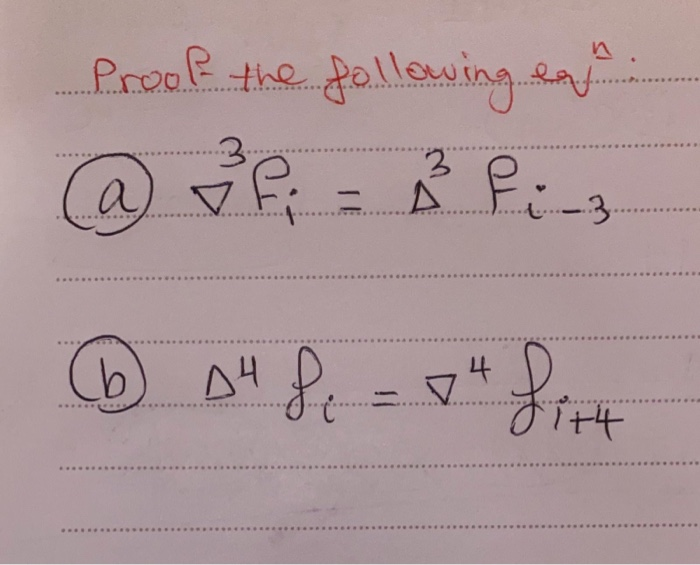 Proof the following eqⁿ:
(a) ∇³fᵢ = Δ³ fᵢ₋₃
(b) Δ⁴ fᵢ = ∇⁴ fᵢ₊₄